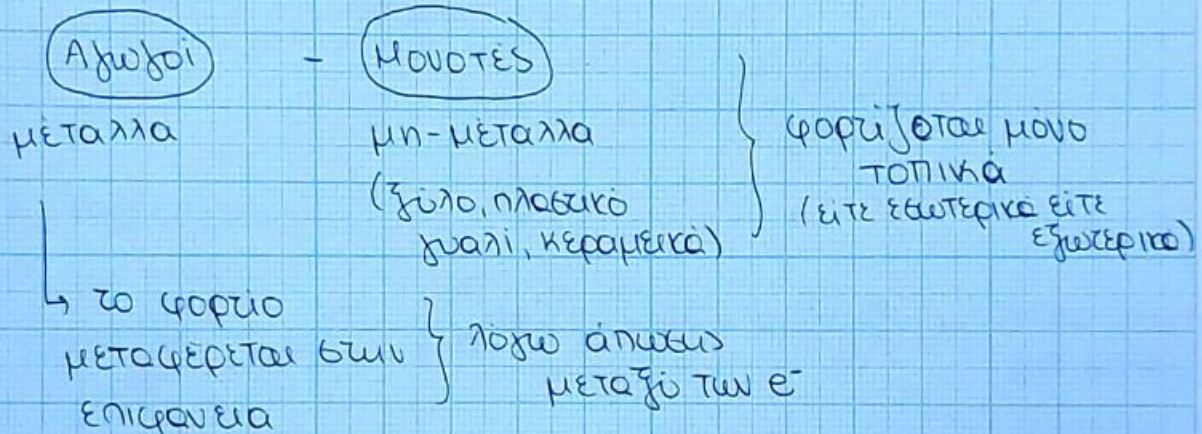 Αγωγοί - Μονοτές
μέταλλα
μη-μέταλλα
(ξύλο, πλαστικό
γυαλί, κεραμεικά)
φορτίζεται μόνο
τοπικά
(είτε εσωτερικά είτε
εξωτερικά)
↳ το φορτίο
μεταφέρεται στην
επιφάνεια
λόγω άπωσης
μεταξύ των e⁻